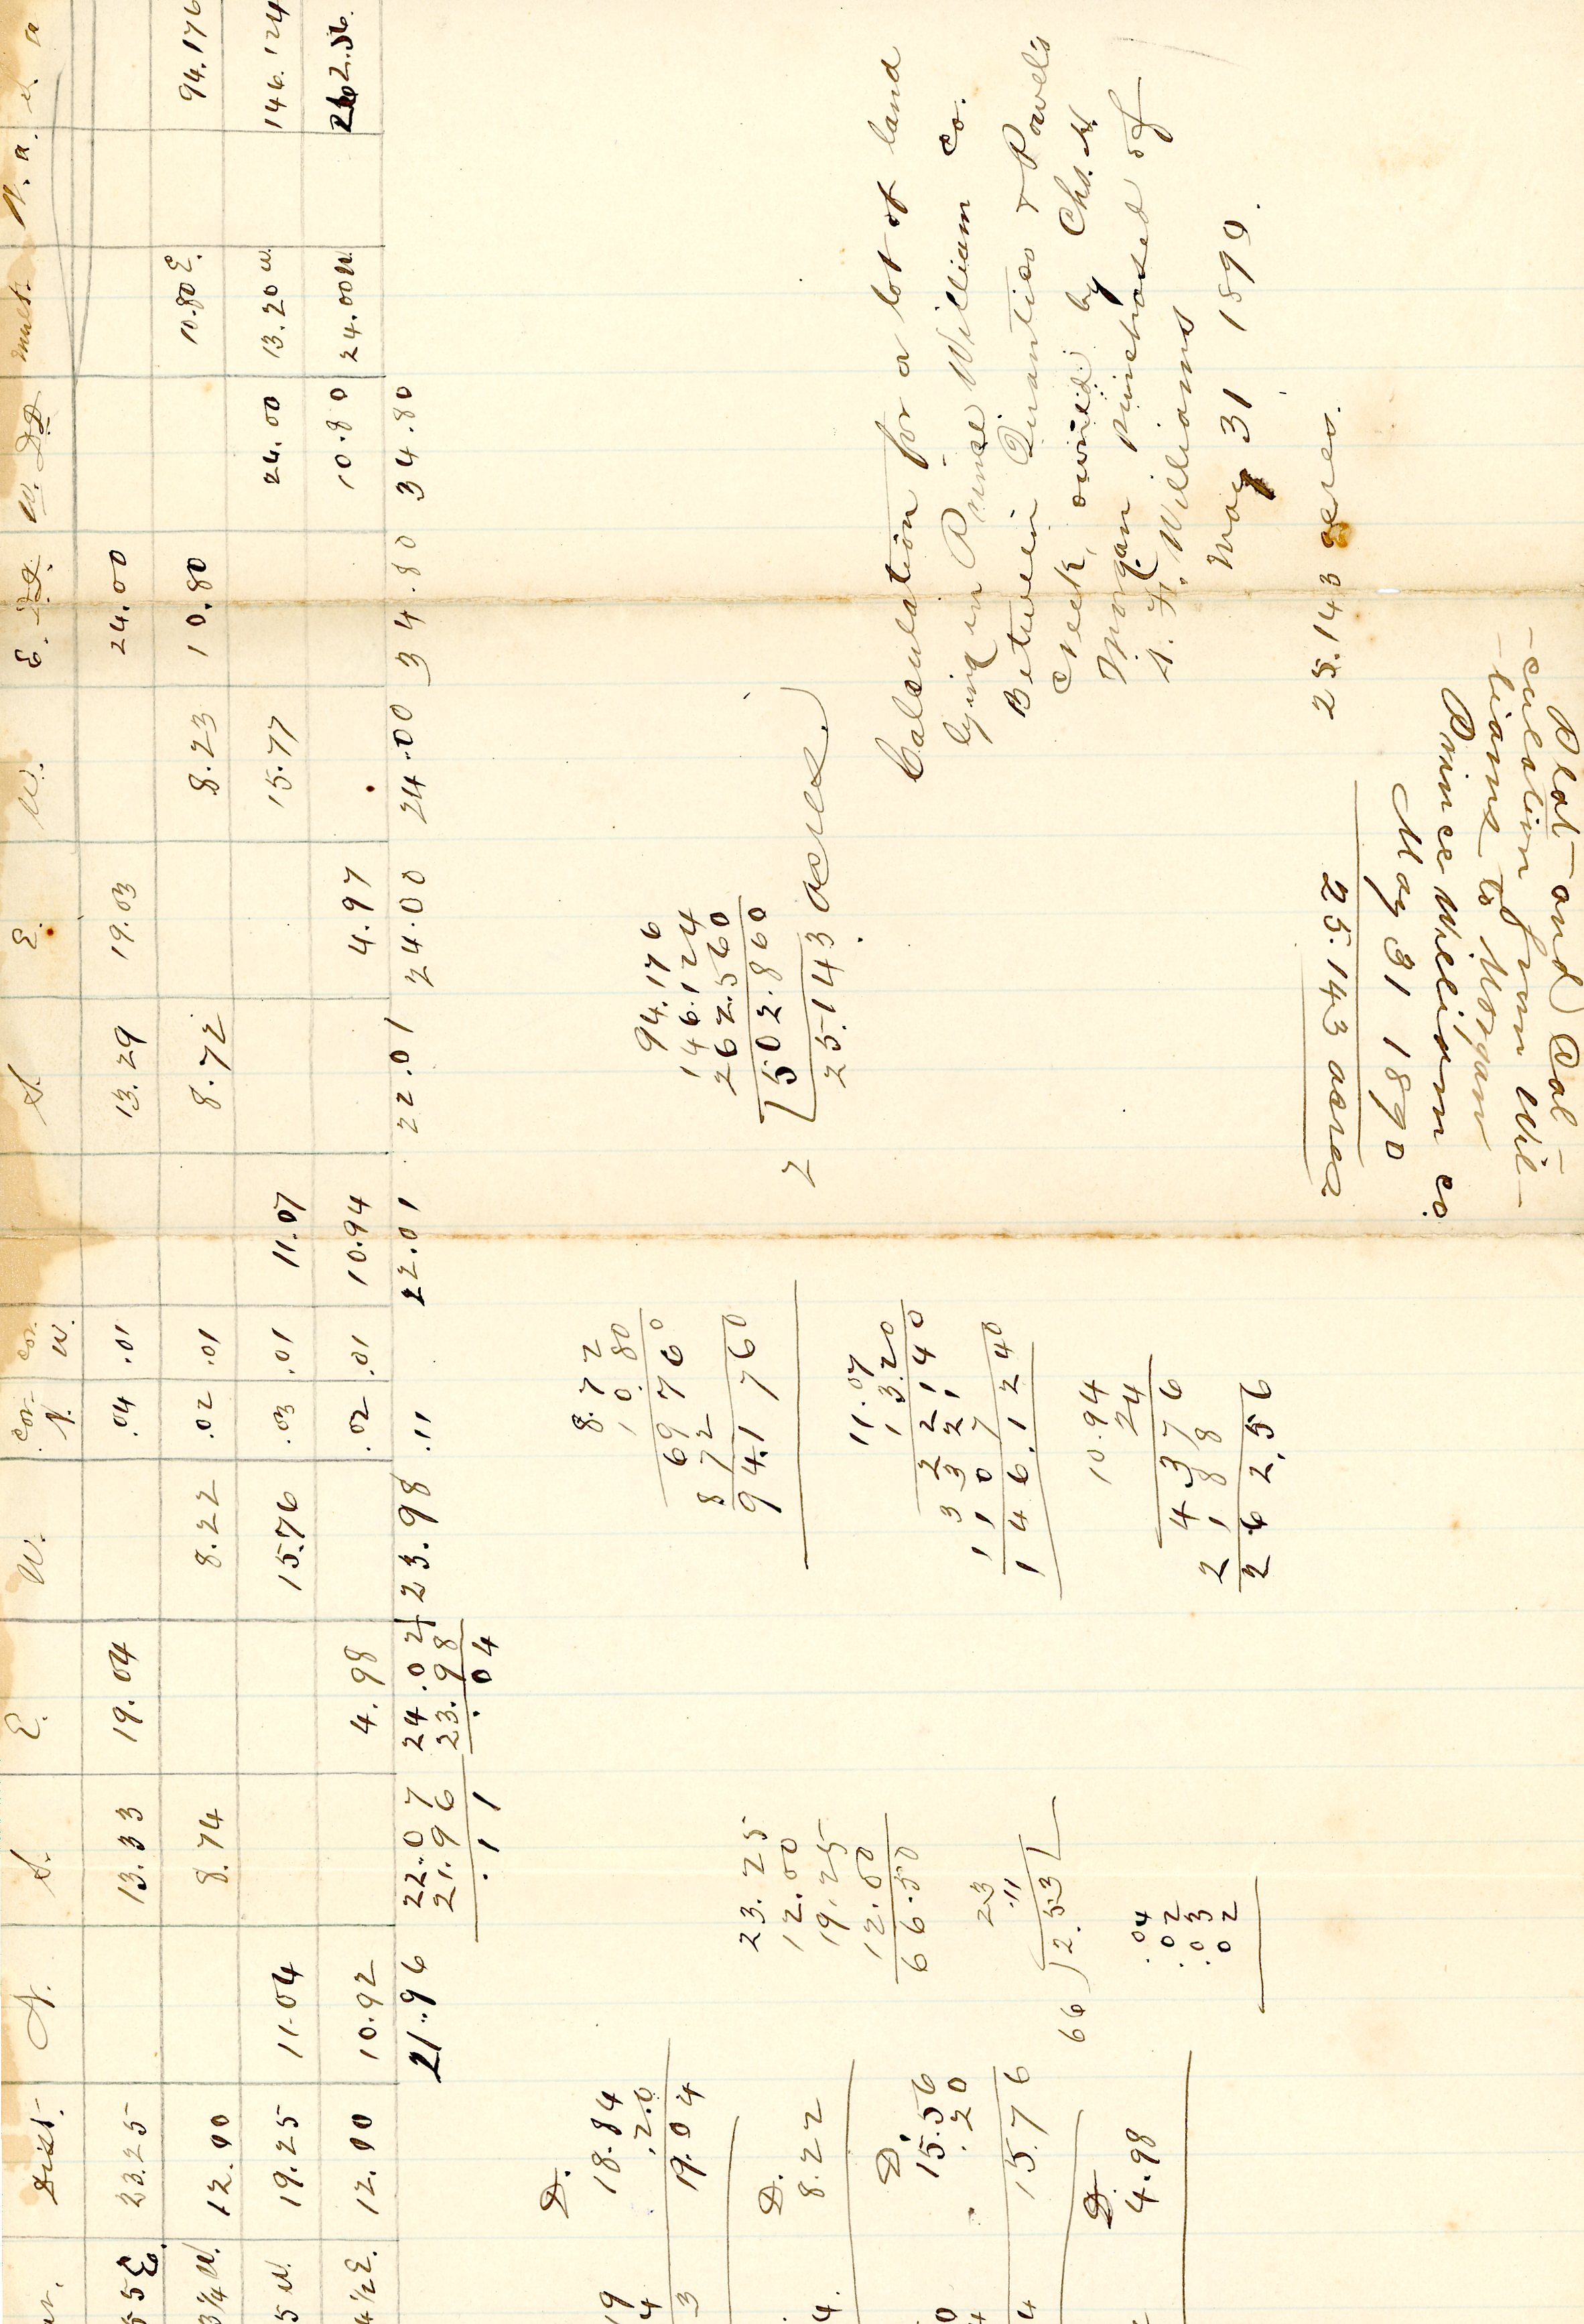 Dist. N. S. E. W. cor. N. cor. W. S. E. W. E. D.D. W. D.D. mult. N. a. S. a
55 E. 23.25 13.33 19.04 .04 .01 13.29 19.03 24.00
3¼ W. 12.00 8.74 8.22 .02 .01 8.72 8.23 10.80 10.80 E. 94.176
5 W. 19.25 11.04 15.76 .03 .01 11.07 15.77 24.00 13.20 W. 146.124
4½ E. 12.00 10.92 4.98 .02 .01 10.94 4.97 10.80 24.00 W. 262.56
21.96 22.07 24.02 23.98 .11 22.01 22.01 24.00 24.00 34.80 34.80
21.96 23.98
.11 .04
D.
18.84
.20
19.04
D.
8.22
D.
15.56
.20
15.76
D.
4.98
23.25
12.00
19.25
12.00
66.50
23
.11
66 ) 2.53
.04
.02
.03
.02
8.72
10.80
69760
872
94.1760
11.07
13.20
22140
3321
1107
146.1240
10.94
24
4376
2188
262.56
94.176
146.124
262.560
2 502.860
25.143 acres.
Calculation for a lot of land
lying in Prince William Co.
Between Quantico & Powel's
Creek, owned by Chs. H.
Morgan purchased of
Williams
May 31 1890.
25.143 acres.
Plat and Cal-
-culation from Wil-
-liams to Morgan
Prince William Co.
May 31 1890
25.143 acres